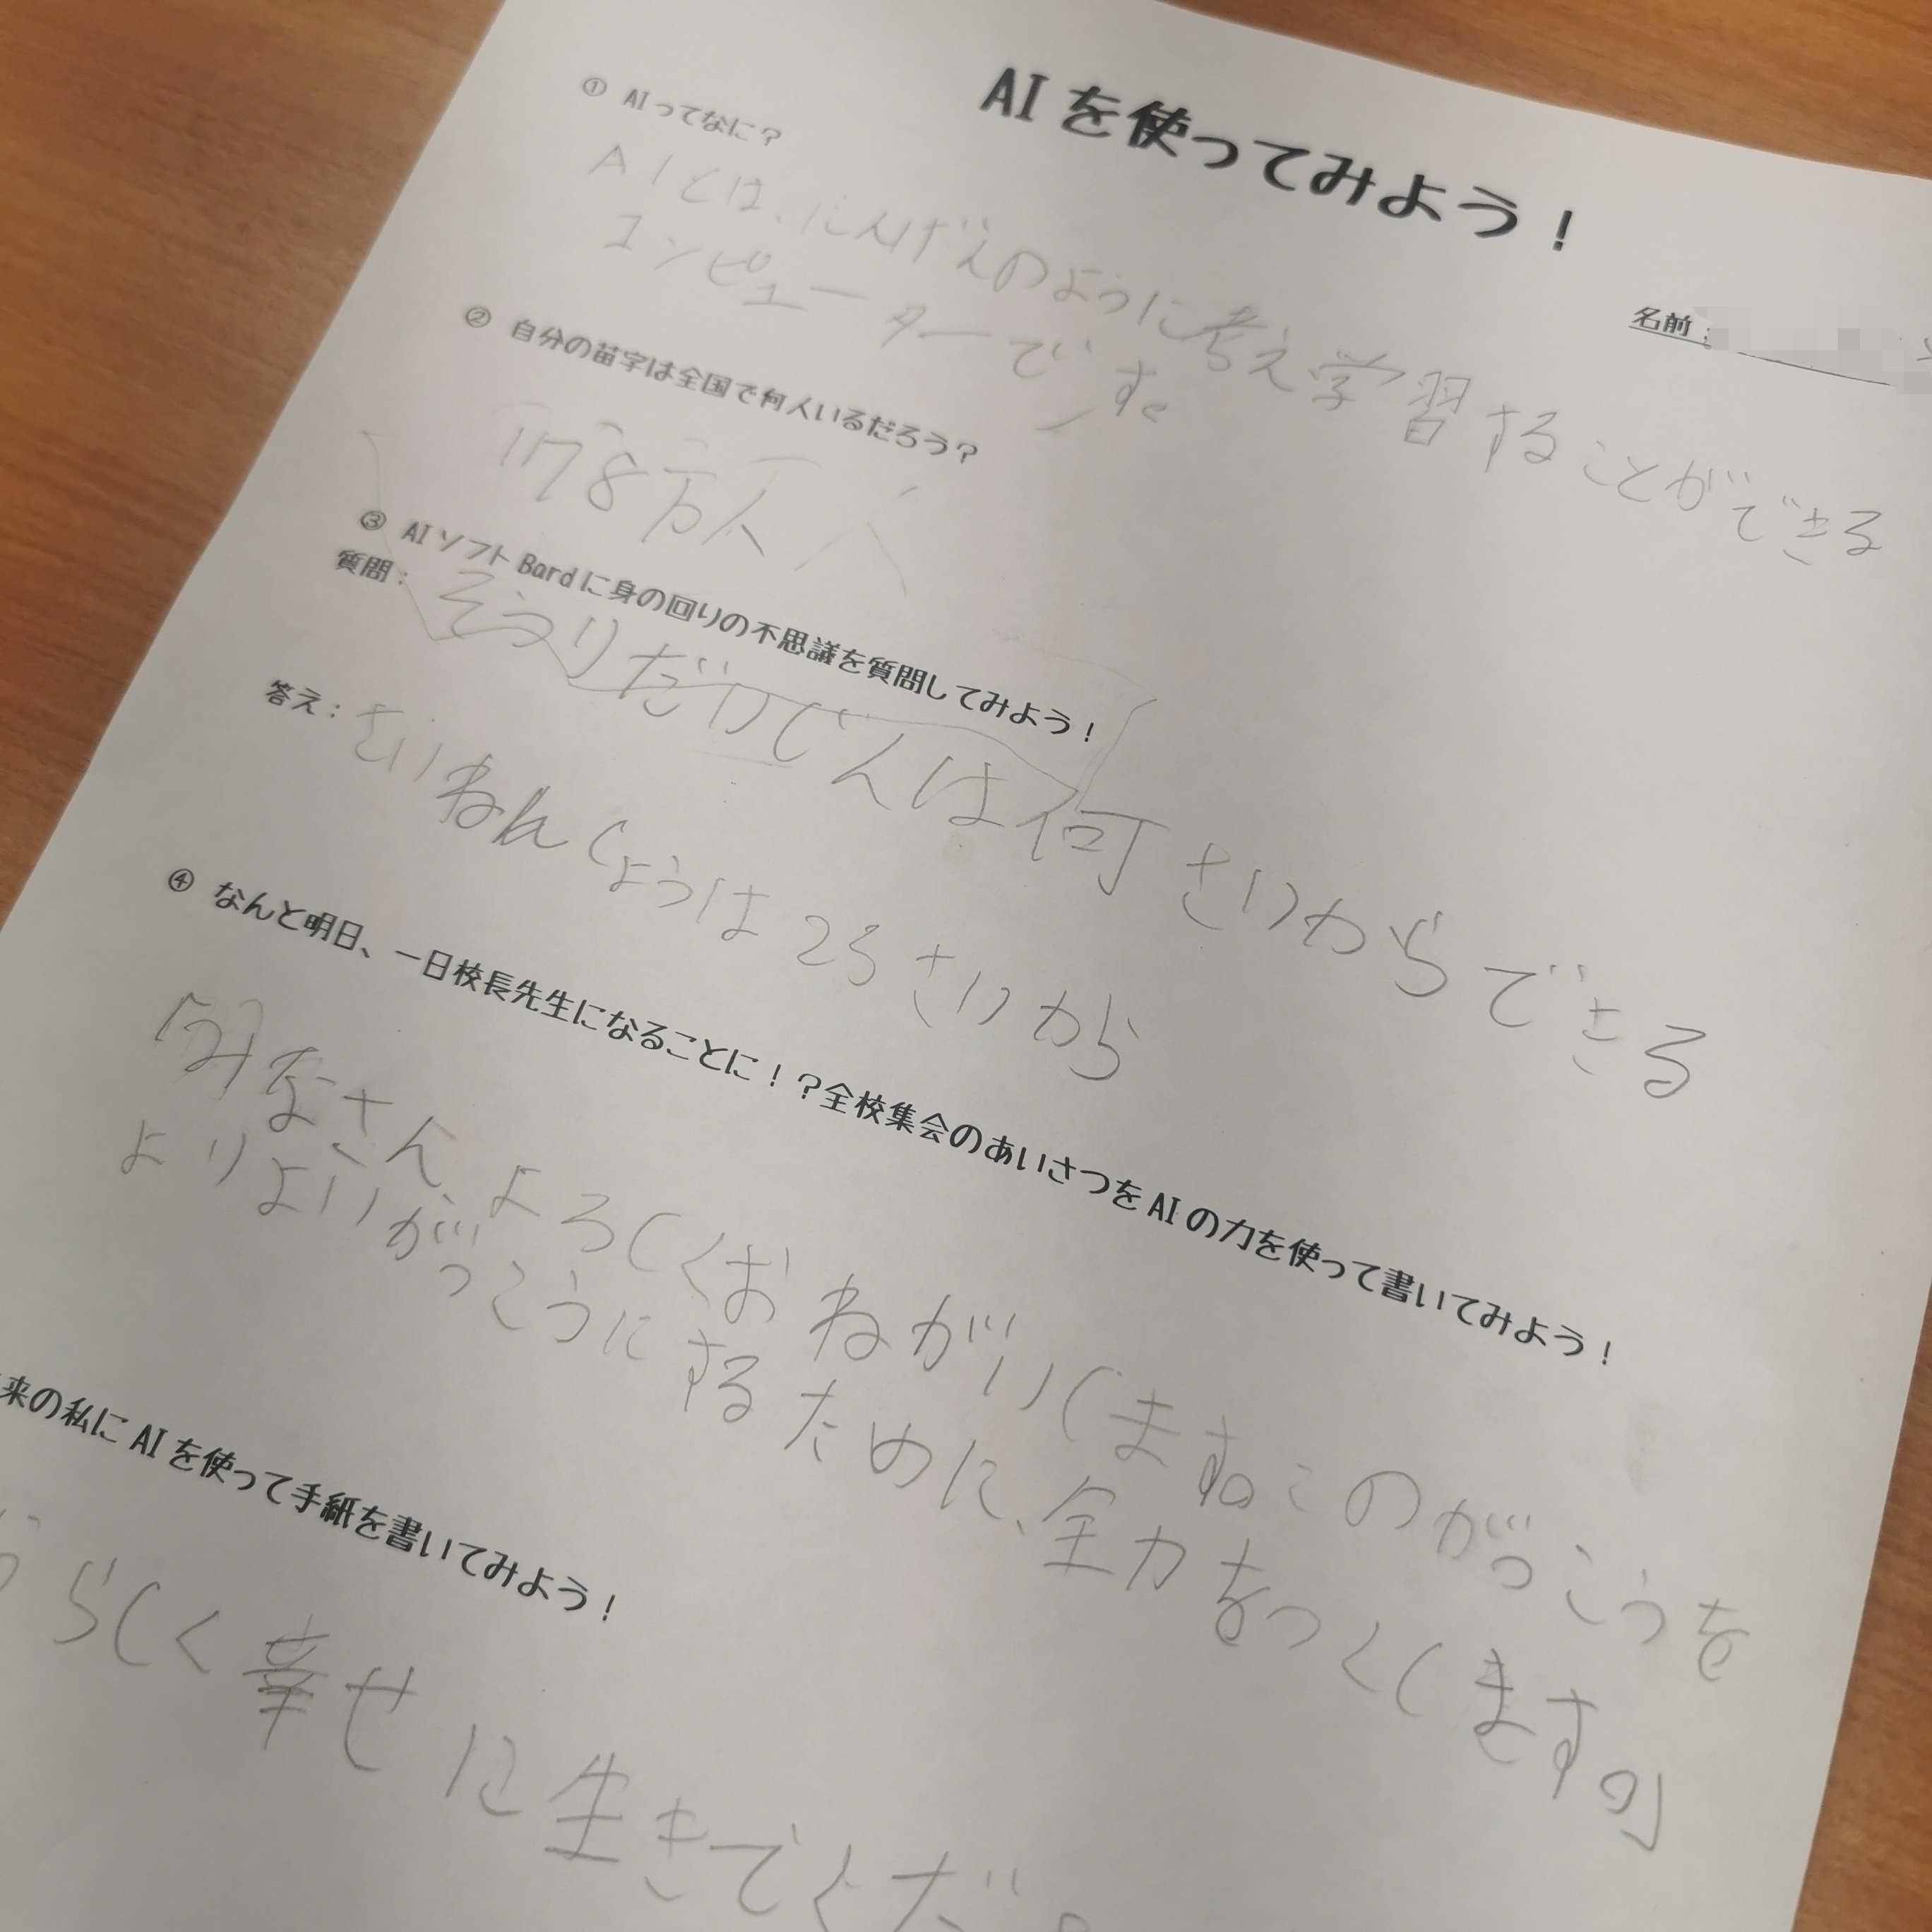 AIを使ってみよう！
名前：
① AIってなに？
AIとは、にんげんのように考え学習することができる
コンピューターです。
② 自分の苗字は全国で何人いるだろう？
178万人
③ AIソフトBardに身の回りの不思議を質問してみよう！
質問：そうりだいじんは何さいからできる
答え：さいねんしょうは25さいから
④ なんと明日、一日校長先生になることに！？全校集会のあいさつをAIの力を使って書いてみよう！
「みなさん、よろしくおねがいします。このがっこうを
よりよいがっこうにするために、全力をつくします。」
来の私にAIを使って手紙を書いてみよう！
らしく幸せに生きてくだ